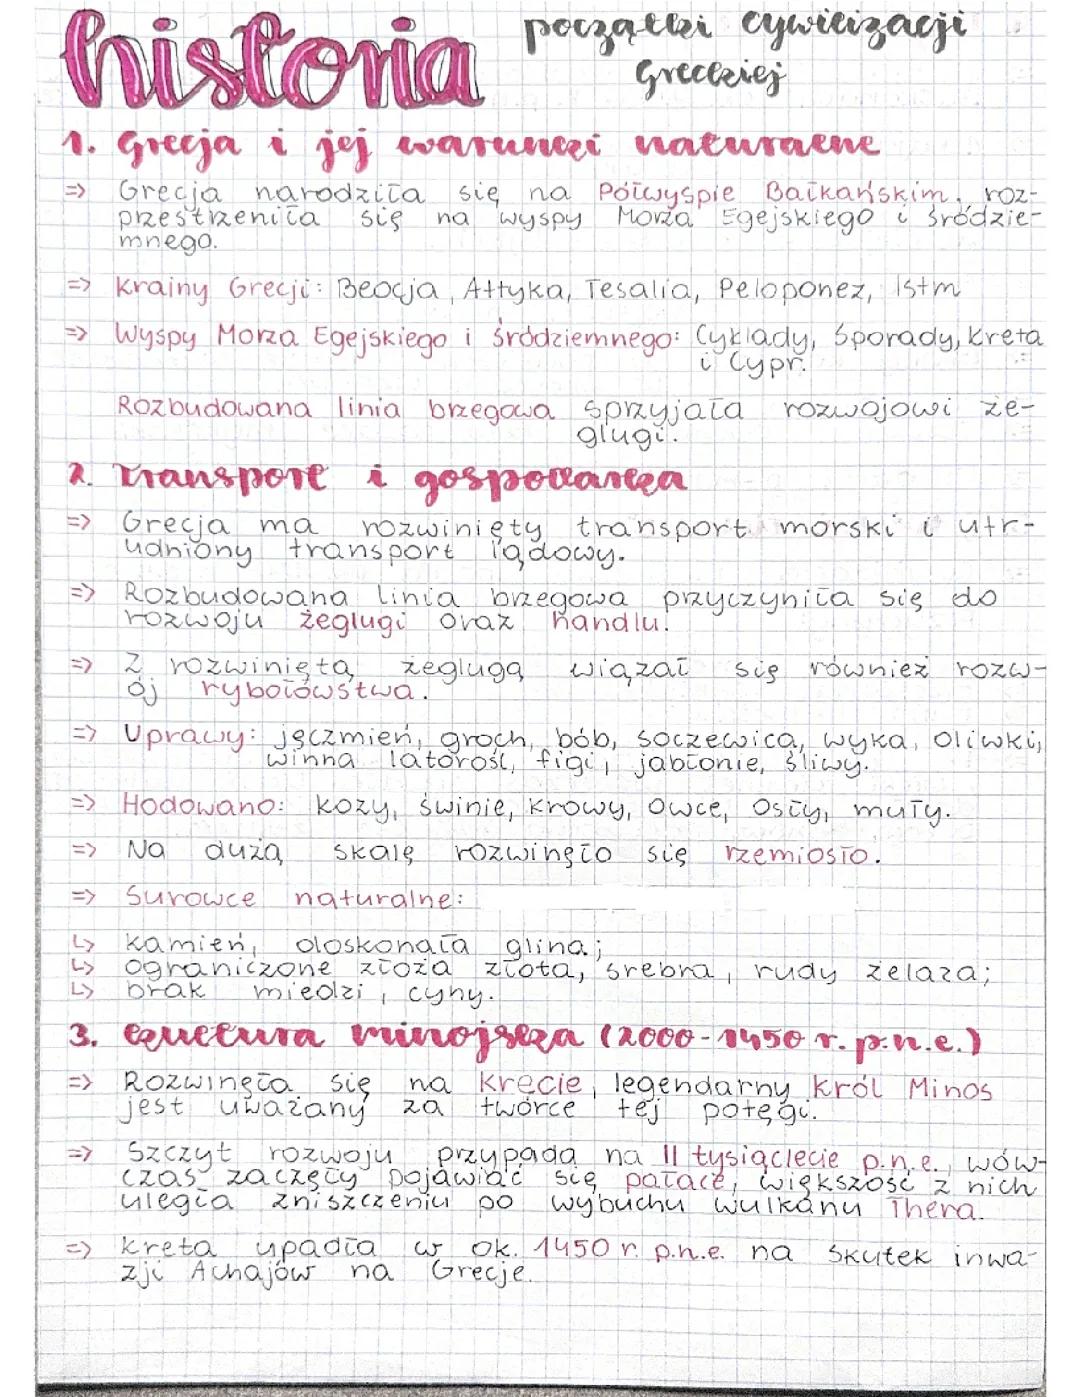 historia
początki cywilizacji
Greckiej
1. Grecja i jej warunki naturalne
=> Grecja narodziła się na Półwyspie Bałkańskim, roz-
przestrzeniła się na wyspy Morza Egejskiego i śródzie-
mnego.
=> Krainy Grecji: Beocja, Attyka, Tesalia, Peloponez, Istm
=> Wyspy Morza Egejskiego i śródziemnego: Cyklady, Sporady, Kreta
i Cypr.
Rozbudowana linia brzegowa sprzyjała rozwojowi że-
glugi.
2. Transport i gospodarka
=> Grecja ma rozwinięty transport morski i utr-
udniony transport lądowy.
=> Rozbudowana linia brzegowa przyczyniła się do
rozwoju żeglugi oraz handlu.
=> Z rozwiniętą żeglugą wiązał się również rozw-
ój rybołówstwa.
=> Uprawy: jęczmień, groch, bób, soczewica, wyka, oliwki,
winna latorośl, figi, jabłonie, śliwy.
=> Hodowano: kozy, świnie, krowy, owce, osły, muły.
=> Na dużą skalę rozwinęło się rzemiosło.
=> Surowce naturalne:
↳ kamień, doskonała glina;
↳ ograniczone złoża złota, srebra, rudy żelaza;
↳ brak miedzi, cyny.
3. Kultura minojska (2000-1450 r. p.n.e.)
=> Rozwinęła się na Krecie, legendarny król Minos
jest uważany za twórcę tej potęgi.
=> Szczyt rozwoju przypada na II tysiąclecie p.n.e., wów-
czas zaczęły pojawiać się pałace, większość z nich
uległa zniszczeniu po wybuchu wulkanu Thera.
=> Kreta upadła w ok. 1450 r. p.n.e. na skutek inwa-
zji Achajów na Grecję.